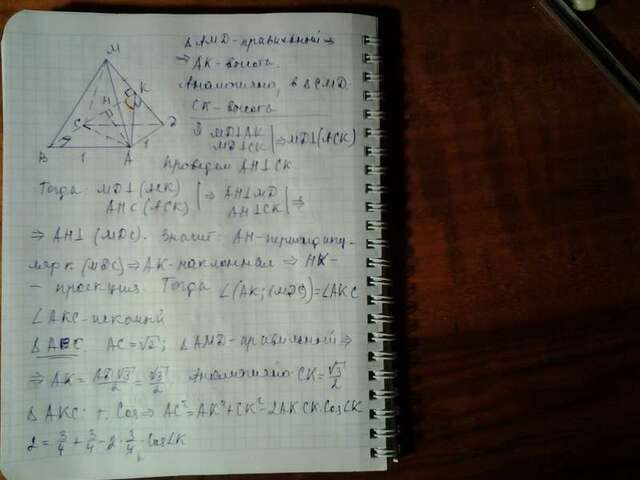 M
K
H
C
D
B
A
1
1
ΔAMD-правильный ⇒
⇒ AK-высота.
Аналогично, в ΔCMD.
CK-высота
MD⊥AK
MD⊥CK | ⇒ MD⊥(ACK)
Проведём AH⊥CK.
Тогда: MD⊥(ACK)
AH⊂(ACK) | ⇒ AH⊥MD
AH⊥CK | ⇒
⇒ AH⊥(MDC). Значит: AH-перпендику-
ляр к (MDC) ⇒ AK-наклонная ⇒ HK-
- проекция. Тогда ∠(AK;(MDC))=∠AKC
∠AKC-искомый
AC=√2; ΔAMD-правильный ⇒
⇒ AK=AD√3/2=√3/2. Аналогично CK=√3/2
ΔAKC: т. Cos ⇒ AC²=AK²+CK²-2AK·CK·Cos∠K
2=3/4+3/4-2·3/4·Cos∠K